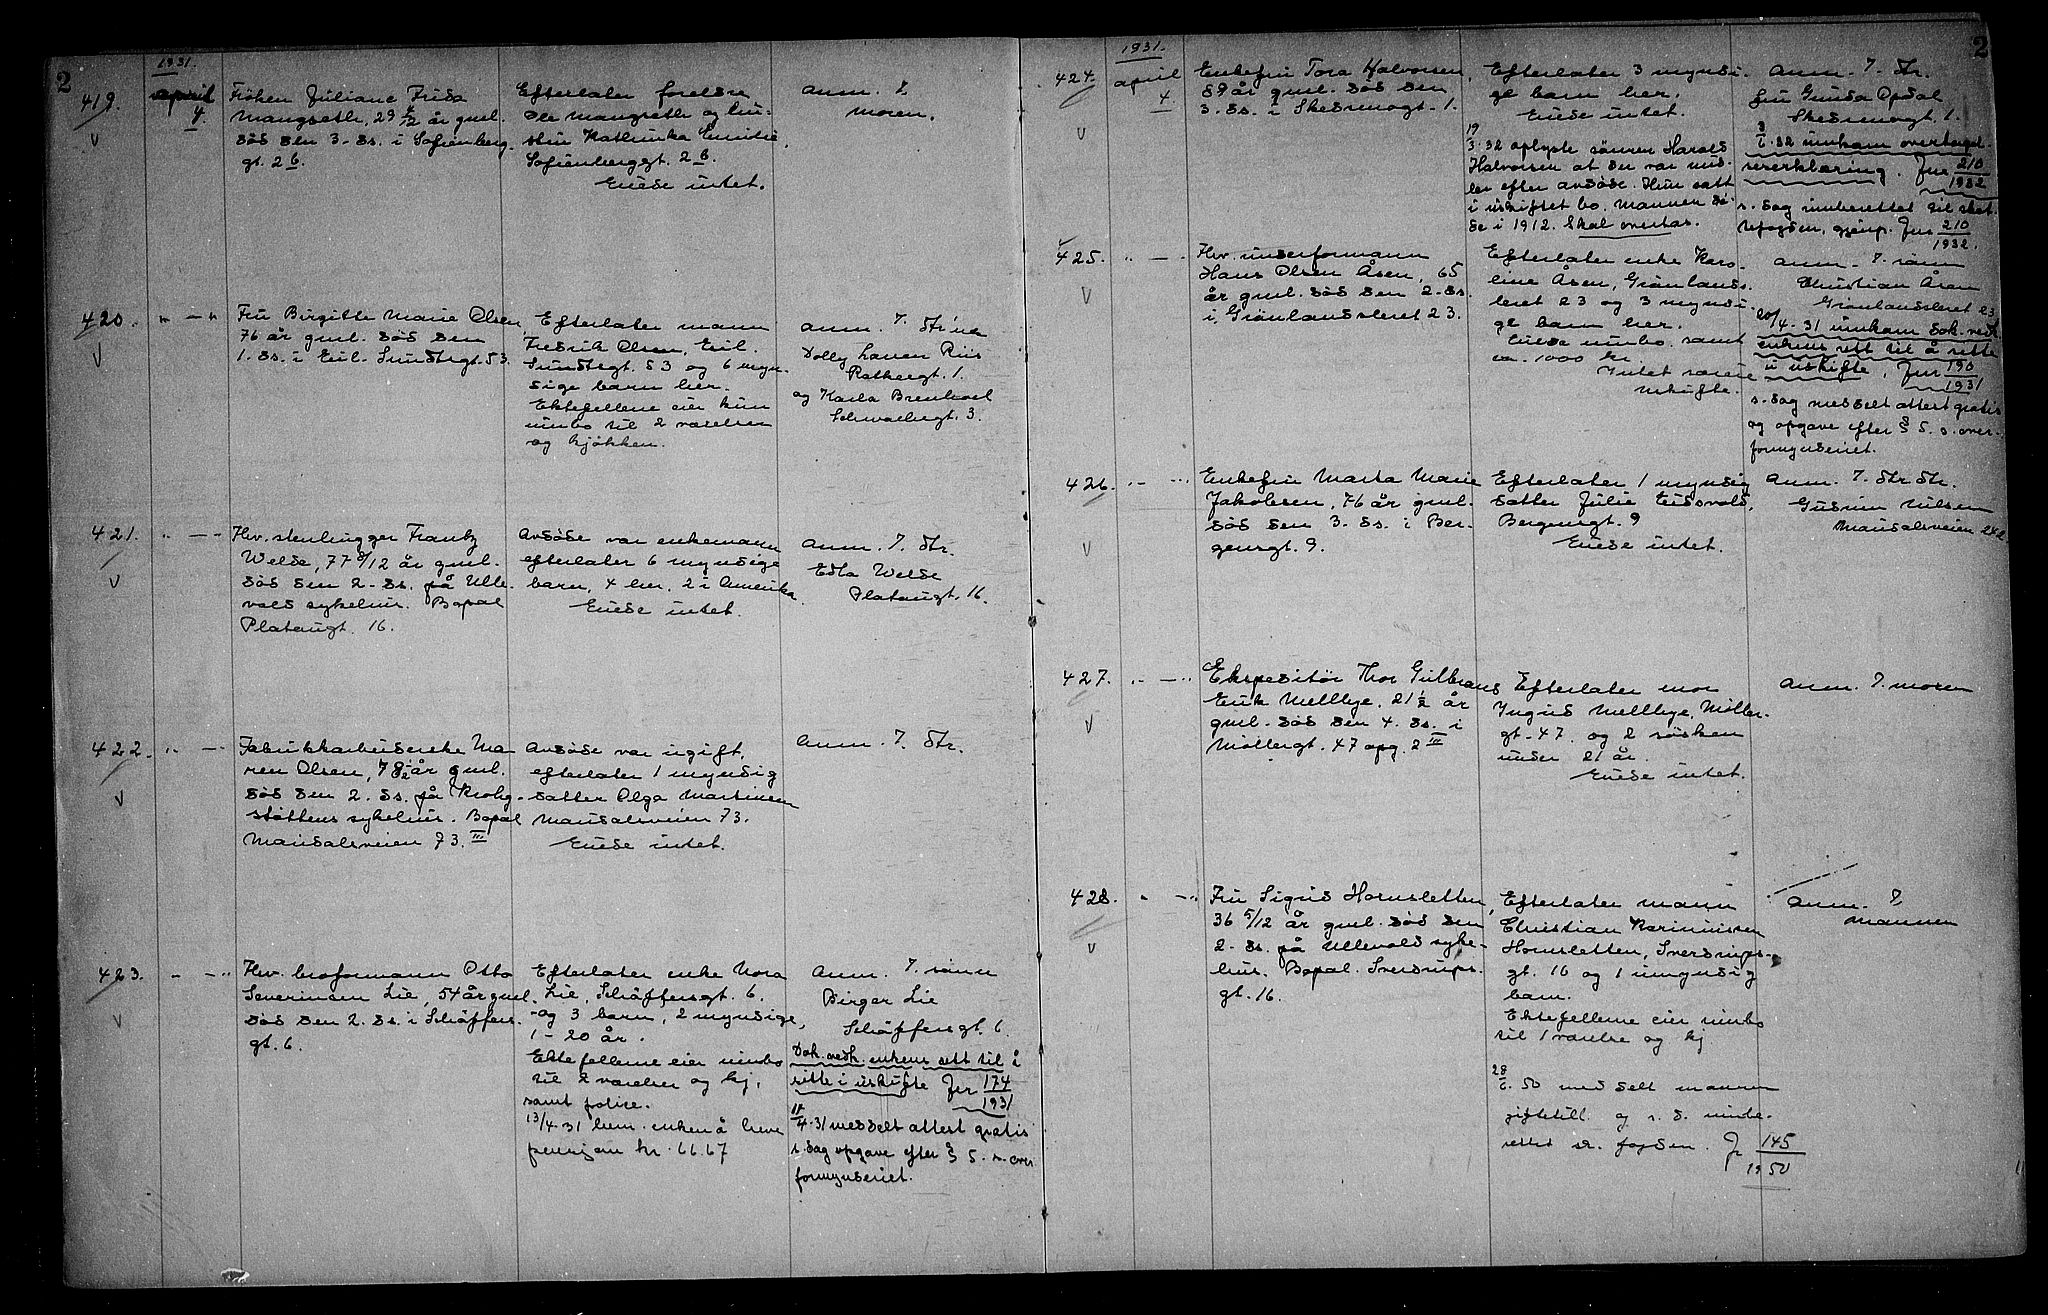 2
1931.
419.
april
4.
Frøken Juliane Frida
Mangseth, 29 1/2 år gml.
død den 3. ds. i Sofienberg-
gt. 2 b.
Efterlater foreldre
Ole Mangseth og hu-
stru Kathinka Emilie
Sofienberggt. 2 b.
Eiede intet.
Anm. 7.
moren.
420.
" — "
Fru Birgitte Marie Olsen,
76 år gml. død den
1. ds. i Eil. Sundtsgt. 53.
Efterlater mann
Fredrik Olsen, Eil.
Sundtsgt. 53 og 6 myn-
dige barn her.
Ektefellene eier kun
innbo til 2 værelser
og kjøkken.
anm. 7. dtr'ne
Dolly Lauen Riis
Rathkesgt. 1.
og Karla Brenhoel
Schwachsgt. 3.
421.
" — "
Hr. stenhugger Frantz
Welde, 77 8/12 år gml.
død den 2. ds. på Ulle-
vål sykehus. Bopæl
Platousgt. 16.
Avdøde var enkemann
efterlater 6 myndige
barn, 4 her, 2 i Amerika
Eiede intet.
Anm. 7. dtr.
Edla Welde
Platousgt. 16.
422.
" — "
Fabrikkarbeiderske Ma-
ren Olsen, 78 1/2 år gml.
død den 2. ds. på Krohg-
støttens sykehus. Bopæl
Maridalsveien 73. III
Avdøde var ugift,
efterlater 1 myndig
datter Olga Martinsen
Maridalsveien 73.
Eiede intet.
Anm. 7. dtr.
423.
" — "
Hr. broformann Otto
Severinsen Lie, 54 år gml.
død den 2. ds. i Schøffers-
gt. 6.
Efterlater enke Nora
Lie, Schøffersgt. 6.
og 3 barn, 2 myndige,
1 - 20 år.
Ektefellene eier innbo
til 2 værelser og kj.
samt police.
13/4-31 bem. enken å heve
pensjon kr. 66.67
Anm. 7. sønn
Birger Lie
Schøffersgt. 6.
Dok. vedk. enkens rett til å
sitte i uskifte Jnr 174
1931
11/4-31 meddelt attest gratis
s. dag opgave efter § 5. s. over
formynderiet.
2
1931.
424.
april
4
Enkefru Tora Halvorsen,
59 år gml. død den
3. ds. i Skedsmogt. 1.
Efterlater 3 myndi-
ge barn her.
Eiede intet.
19
3.32 oplyste sønnen Harald
Halvorsen at der var mid-
ler efter avdøde. Hun satt
i uskiftet bo. Mannen dø-
de i 1912. Skal overtas.
Anm. 7. dtr.
fru Gunda Opdal
Skedsmogt. 1.
8
7.32 innkom overtagel-
seserklæring. Jnr 210
1932
s. dag innberettet til skat-
tefogden, gjenp. Jnr 210
1932.
425.
" — "
Hr. underformann
Hans Olsen Åsen, 65
år gml. død den 2. ds.
i Grønlandsleret 23.
Efterlater enke Karo-
line Åsen, Grønlands-
leret 23 og 3 myndi-
ge barn her.
Eiede innbo samt
ca. 1000 kr.
Intet særeie
uskifte.
anm. 7. sønn
Christian Åsen
Grønlandsleret 23.
20/4-31 innkom dok. vedk.
enkens rett til å sitte
i uskifte, Jnr 190
1931
s. dag meddelt attest gratis
og opgave efter § 5. s. over-
formynderiet.
426.
" — "
Enkefru Marta Marie
Jakobsen, 76 år gml.
død den 3. ds. i Ber-
gensgt. 9.
Efterlater 1 myndig
datter Julie Eidsvold,
Bergensgt. 9
Eiede intet.
Anm. 7. dtr dtr.
Gudrun Nilsen
Maridalsveien 242
427.
" — "
Ekspeditør Thor Gulbrans
Erik Mellbye, 21 1/2 år
gml. død den 4. ds. i
Møllergt. 47 opg. 2 III
Efterlater mor
Ingrid Mellbye, Møller-
gt. 47. og 2 søsken
under 21 år.
Eiede intet.
Anm. 7. moren
428.
" — "
Fru Sigrid Hornsletten,
36 5/12 år gml. død den
2. ds. på Ullevål syke-
hus. Bopæl. Sverdrups-
gt. 16.
Efterlater mann
Christian Hornsletten, Sverdrups-
gt. 16 og 1 umyndig
barn.
Ektefellene eier innbo
til 1 værelse og kj
28
2. 50 meddelt mannen
giftetill. og s. d. innbe-
rettet sk. fogden. Jr 145
1950
Anm. 7.
mannen